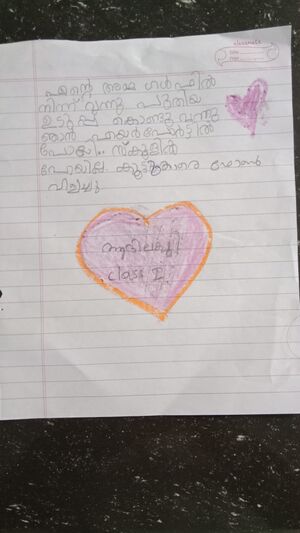 classmate
Date
Page
എന്റെ അമ്മ ഗൾഫിൽ
നിന്ന് വന്നു. പുതിയ
ഉടുപ്പ് കൊണ്ടുവന്നു
ഞാൻ എയർപോർട്ടിൽ
പോയി. സ്കൂളിൽ
പോയില്ല. കൂട്ടുകാരെ ഫോൺ
വിളിച്ചു.
class I